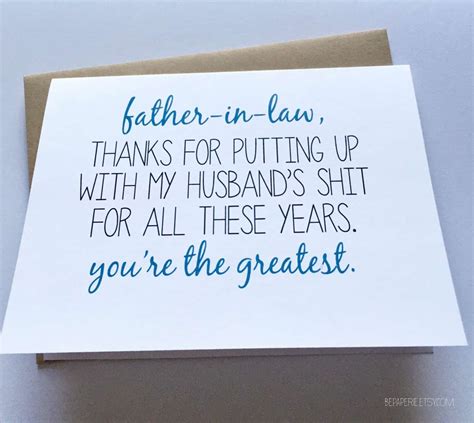 father-in-law,
THANKS FOR PUTTING UP
WITH MY HUSBAND'S SHIT
FOR ALL THESE YEARS.
you're the greatest.
BEPAPERIE.ETSY.COM